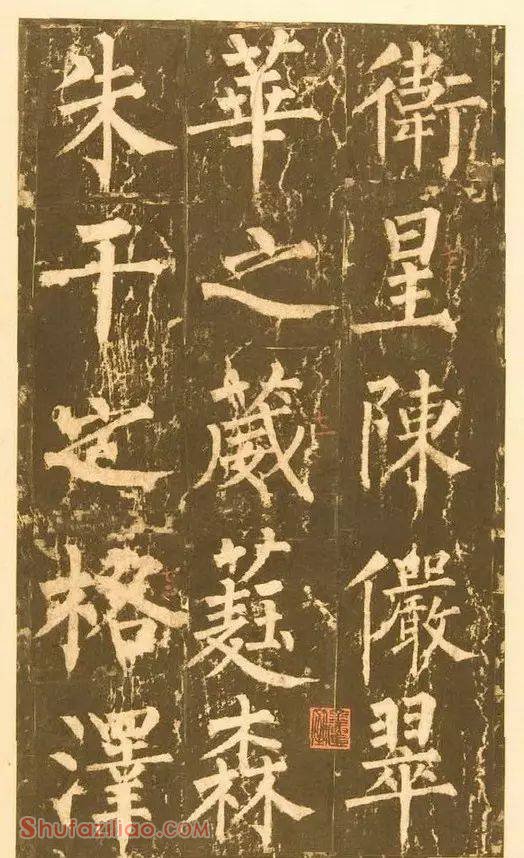 衛星陳儼翠
華之葳蕤森
朱干之格澤
Shufaziliao.com